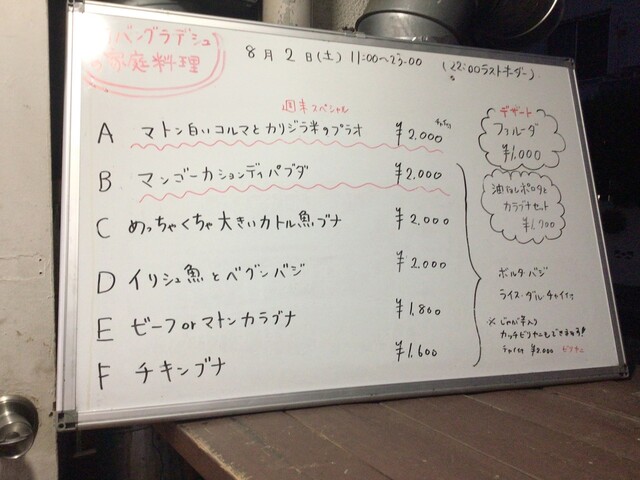 バングラデシュ
家庭料理
8月2日(土) 11:00〜23:00
(22:00ラストオーダー)
週末スペシャル
A マトン白いコルマとカリジラ米のプラオ ¥2,000 チャイ付
B マンゴーカションディパブダ ¥2,000
C めっちゃくちゃ大きいカトル魚ブナ ¥2,000
D イリシュ魚とベグンバジ ¥2,000
E ビーフorマトンカラブナ ¥1,800
F チキンブナ ¥1,600
デザート
ファルーダ
¥1,000
油なしポロタと
カラブナセット
¥1,700
ボルタ・バジ
ライス・ダル・チャイ付
※じゃが芋入り
カッチビリヤニもできます
チャイ付 ¥2,000 ビリヤニ